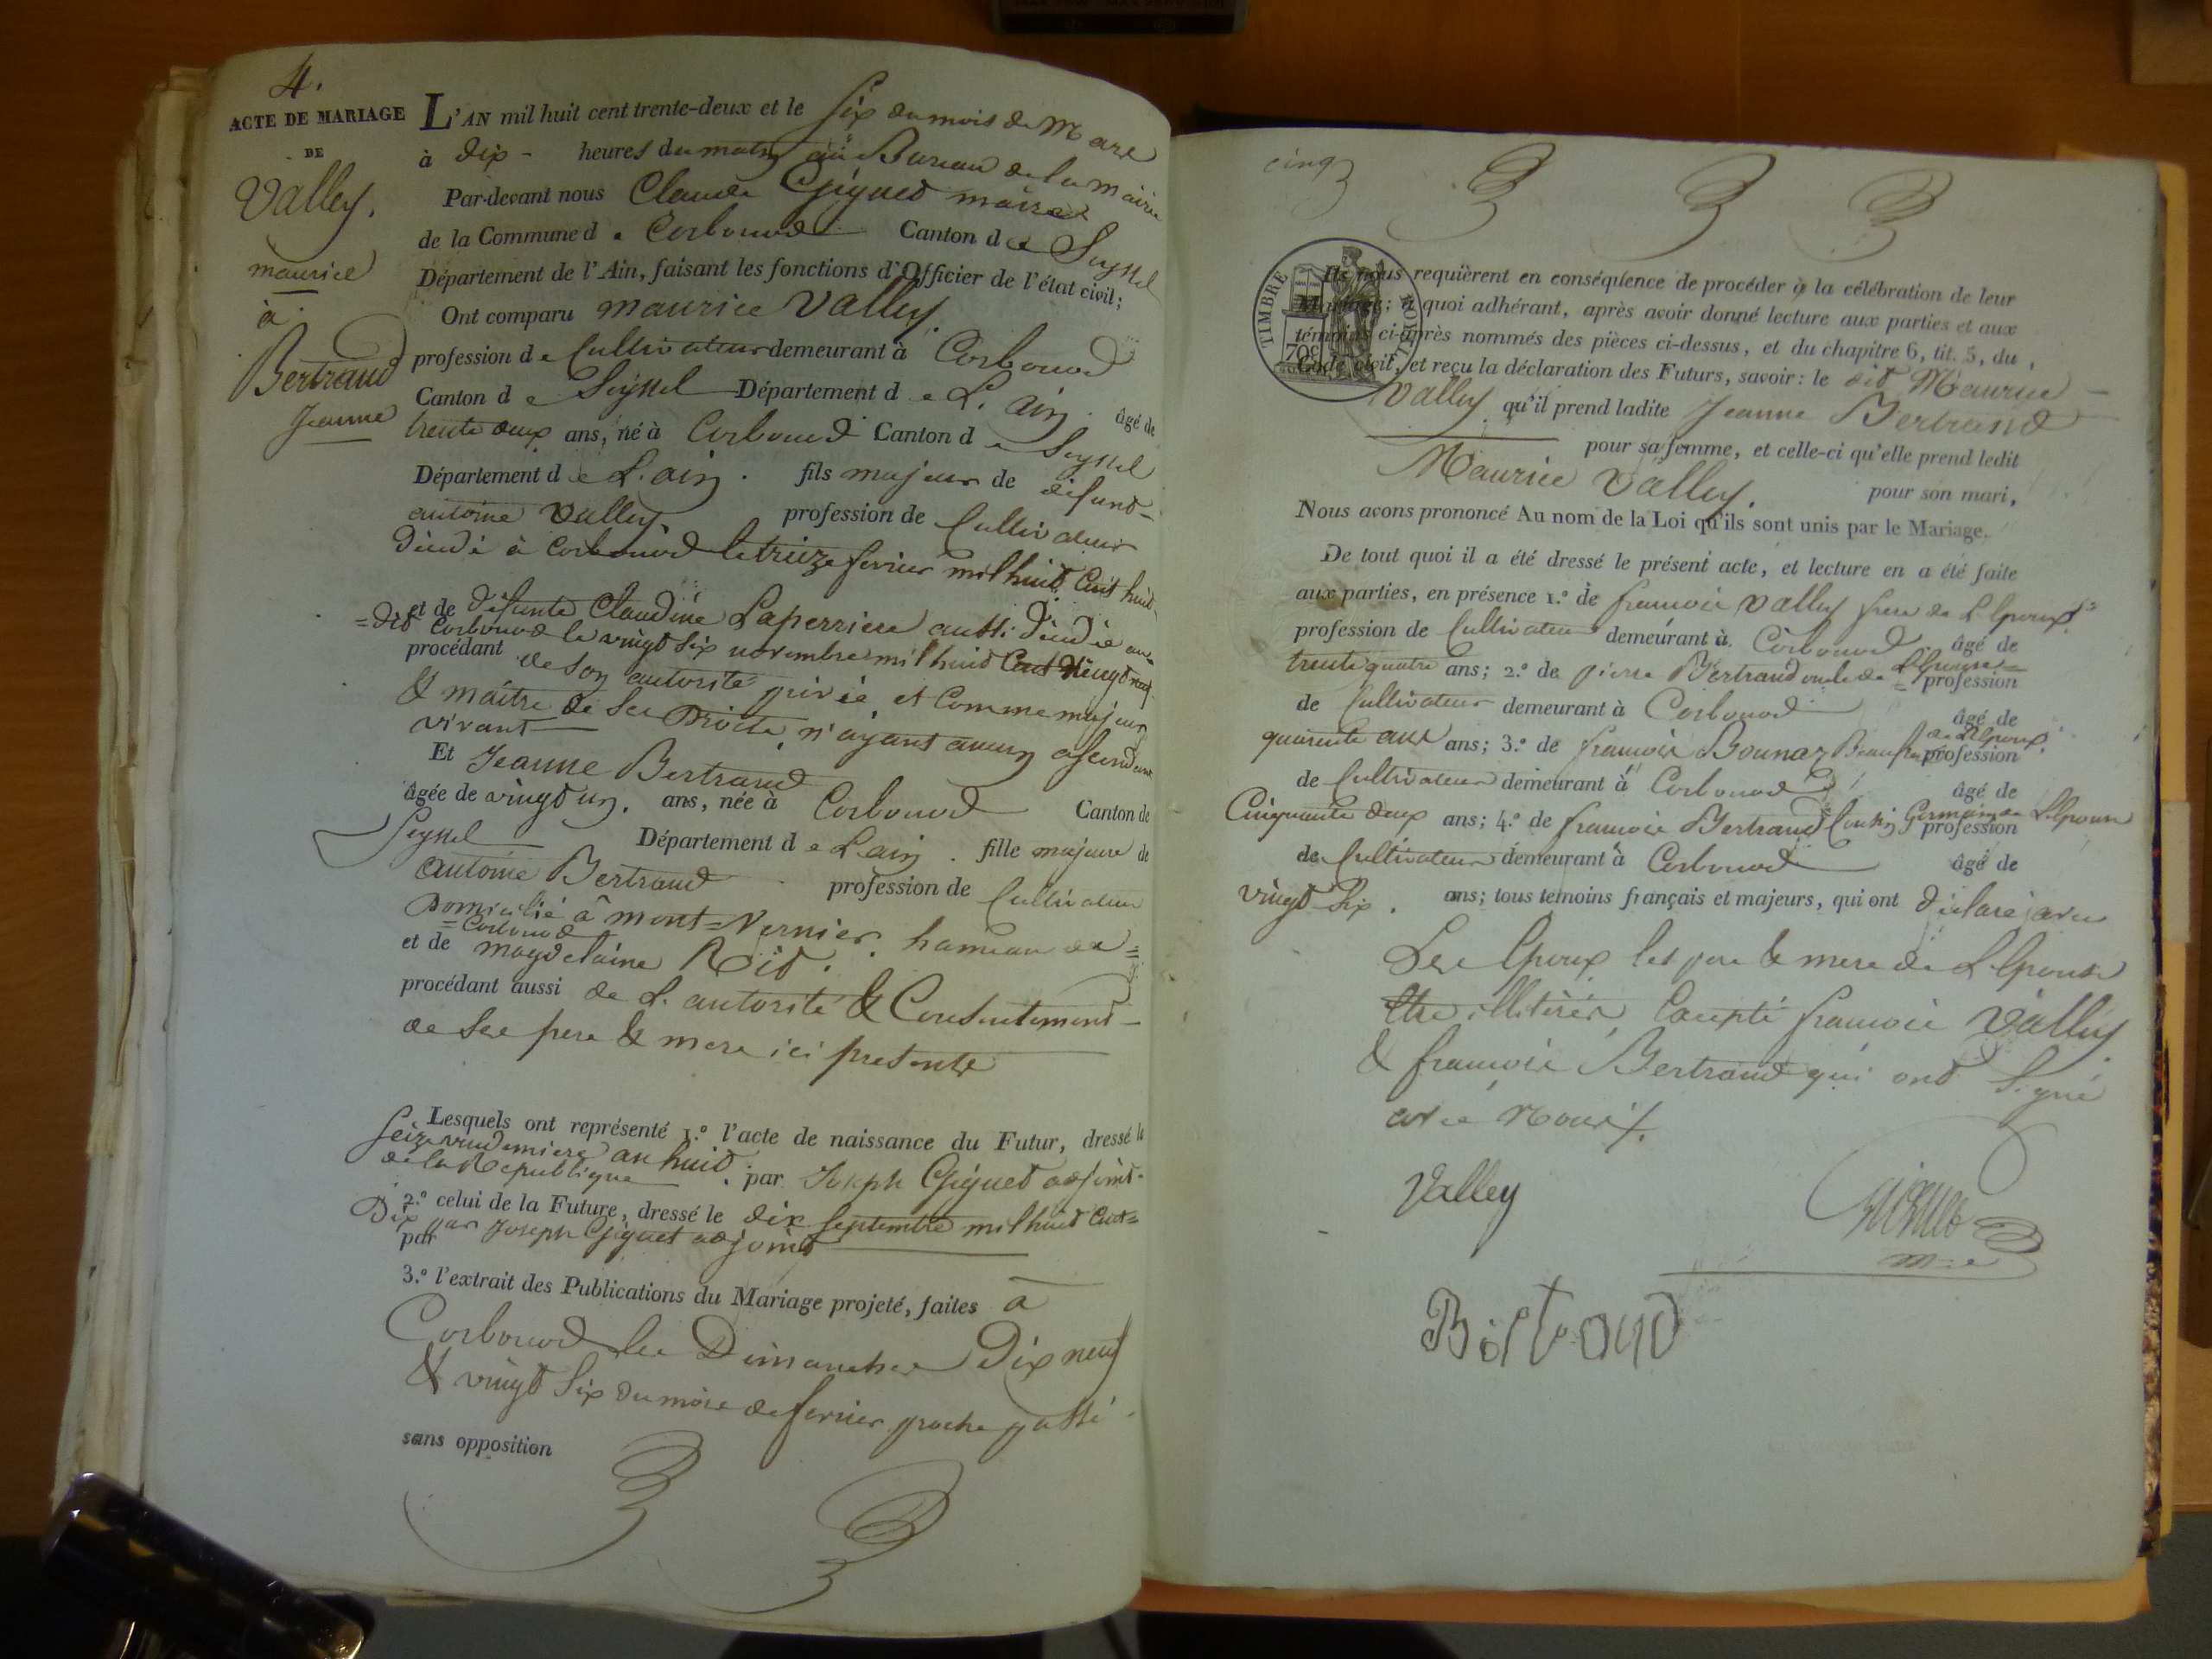 4.
ACTE DE MARIAGE
DE
Valley.
maurice
à
Bertrand
Jeanne
L'AN mil huit cent trente-deux et le six du mois de Mars
à dix - heures du matin au Bureau de la mairie
Par-devant nous Claude Giguet maire
de la Commune de Corbonod Canton de Seyssel
Département de l'Ain, faisant les fonctions d'Officier de l'état civil;
Ont comparu maurice Valley.
profession de Cultivateur demeurant à Corbonod
Canton de Seyssel Département de L'ain. âgé de
trente deux ans, né à Corbonod Canton de Seyssel
Département de L'ain. fils majeur de défunt
antoine Valley. profession de Cultivateur
décédé à Corbonod le treize fevrier mil huit Cent huit
et de défunte Claudine Laperriere aussi décédée au
=dit Corbonod le vingt six novembre mil huit Cent vingt neuf
procédant de son autorité privée et Comme majeur
& maître de ses Droits, n'ayant aucun ascendant
vivant
Et Jeanne Bertrand
âgée de vingt un. ans, née à Corbonod Canton de
Seyssel Département de L'ain. fille majeure de
antoine Bertrand profession de Cultivateur
Domicilié à mont=Vernier. hameau de=
=Corbonod
et de magdelaine Roit.
procédant aussi de L'autorité & Consentement
de ses pere & mere ici presents
Lesquels ont représenté 1.º l'acte de naissance du Futur, dressé le
seize vendemiere an huit
de la Republique. par Joseph Giguet adjoint.
2.º celui de la Future, dressé le dix septembre mil huit Cent=
Dix par Joseph Giguet adjoint
par
3.º l'extrait des Publications du Mariage projeté, faites à
Corbonod les Dimanches Dix neuf
& vingt six du mois de fevrier proche passé
sans opposition
cinq
TIMBRE ROYAL
70c
Ils nous requièrent en conséquence de procéder à la célébration de leur
Mariage; à quoi adhérant, après avoir donné lecture aux parties et aux
témoins ci-après nommés des pièces ci-dessus, et du chapitre 6, tit. 5, du
Code civil, et reçu la déclaration des Futurs, savoir: le dit Maurice
Valley qu'il prend ladite Jeanne Bertrand
pour sa femme, et celle-ci qu'elle prend ledit
Maurice Valley. pour son mari,
Nous avons prononcé Au nom de la Loi qu'ils sont unis par le Mariage.
De tout quoi il a été dressé le présent acte, et lecture en a été faite
aux parties, en présence 1.º de francois Valley frere de L'epoux
profession de Cultivateur demeurant à Corbonod âgé de
trente quatre ans; 2.º de pierre Bertrand oncle de L'Epouse profession
de Cultivateur demeurant à Corbonod âgé de
quarente ans; 3.º de francois Bounaz Beaufrere de L'Epoux profession
de Cultivateur demeurant à Corbonod âgé de
Cinquante deux ans; 4.º de francois Bertrand Cousin Germain de L'Epouse profession
de Cultivateur demeurant à Corbonod âgé de
vingt six. ans; tous temoins français et majeurs, qui ont déclaré avec
Les Epoux les pere & mere de L'Epouse
Etre illitérés, Excepté francois Valley
& francois Bertrand qui ont Signé
avec nous.
Valley
Giguet
m-e
Bertrand